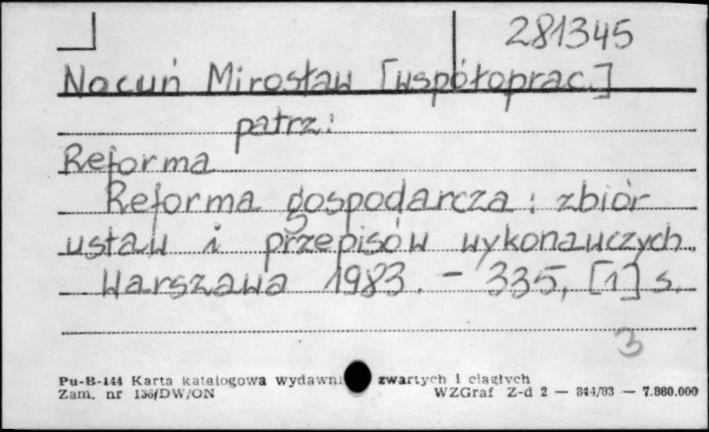 281345
Nocuń Mirosław [współoprac.]
patrz:
Reforma
Reforma gospodarcza : zbiór
ustaw i przepisów wykonawczych
Warszawa 1983. – 335, [1] s.
3
Pu-B-144 Karta katalogowa wydawni zwartych i ciągłych
Zam. nr 136/DW/ON WZGraf Z-d 2 — 344/83 — 7.880.000